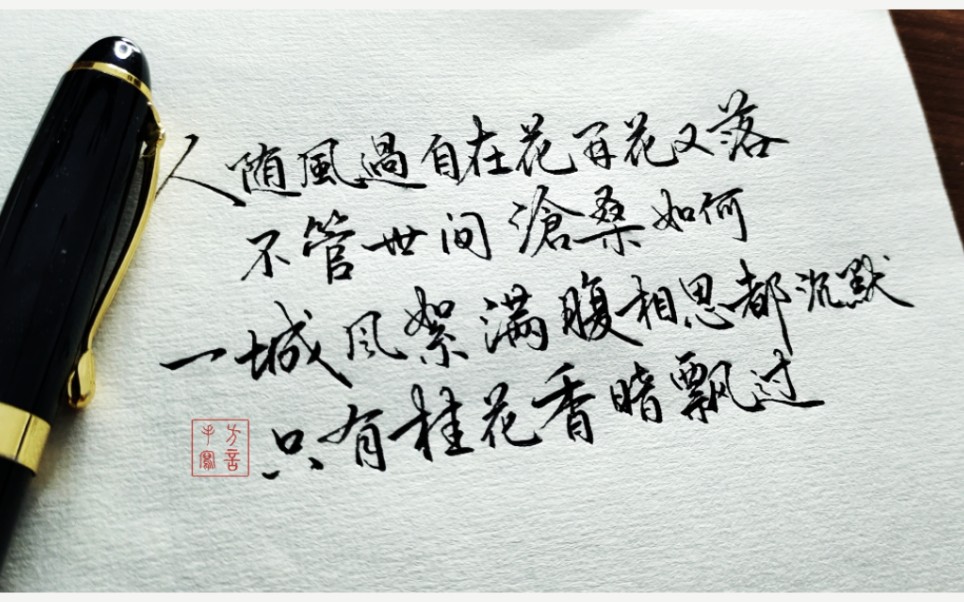 人随風過自在花開花又落
不管世间滄桑如何
一城风絮满腹相思都沉默
只有桂花香暗飄过